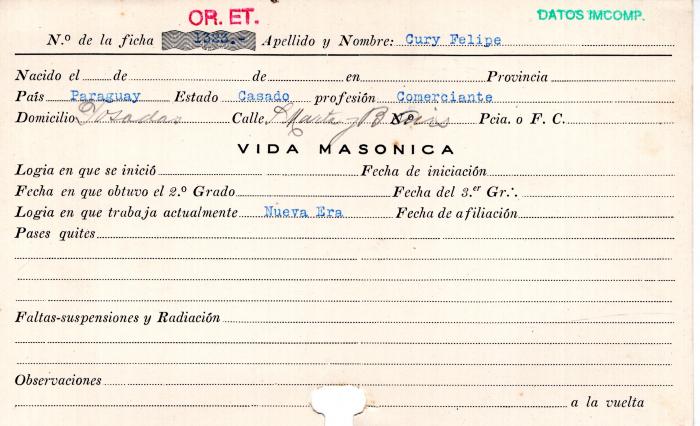 OR. ET.
DATOS IMCOMP.
N.º de la ficha 1323.- Apellido y Nombre: Cury Felipe
Nacido el de de en Provincia
País Paraguay Estado Casado profesión Comerciante
Domicilio Posadas Calle S Martin y B. Aires N.º Pcia. o F. C.
VIDA MASONICA
Logia en que se inició Fecha de iniciación
Fecha en que obtuvo el 2.º Grado Fecha del 3.er Gr∴
Logia en que trabaja actualmente Nueva Era Fecha de afiliación
Pases quites
Faltas-suspensiones y Radiación
Observaciones
a la vuelta